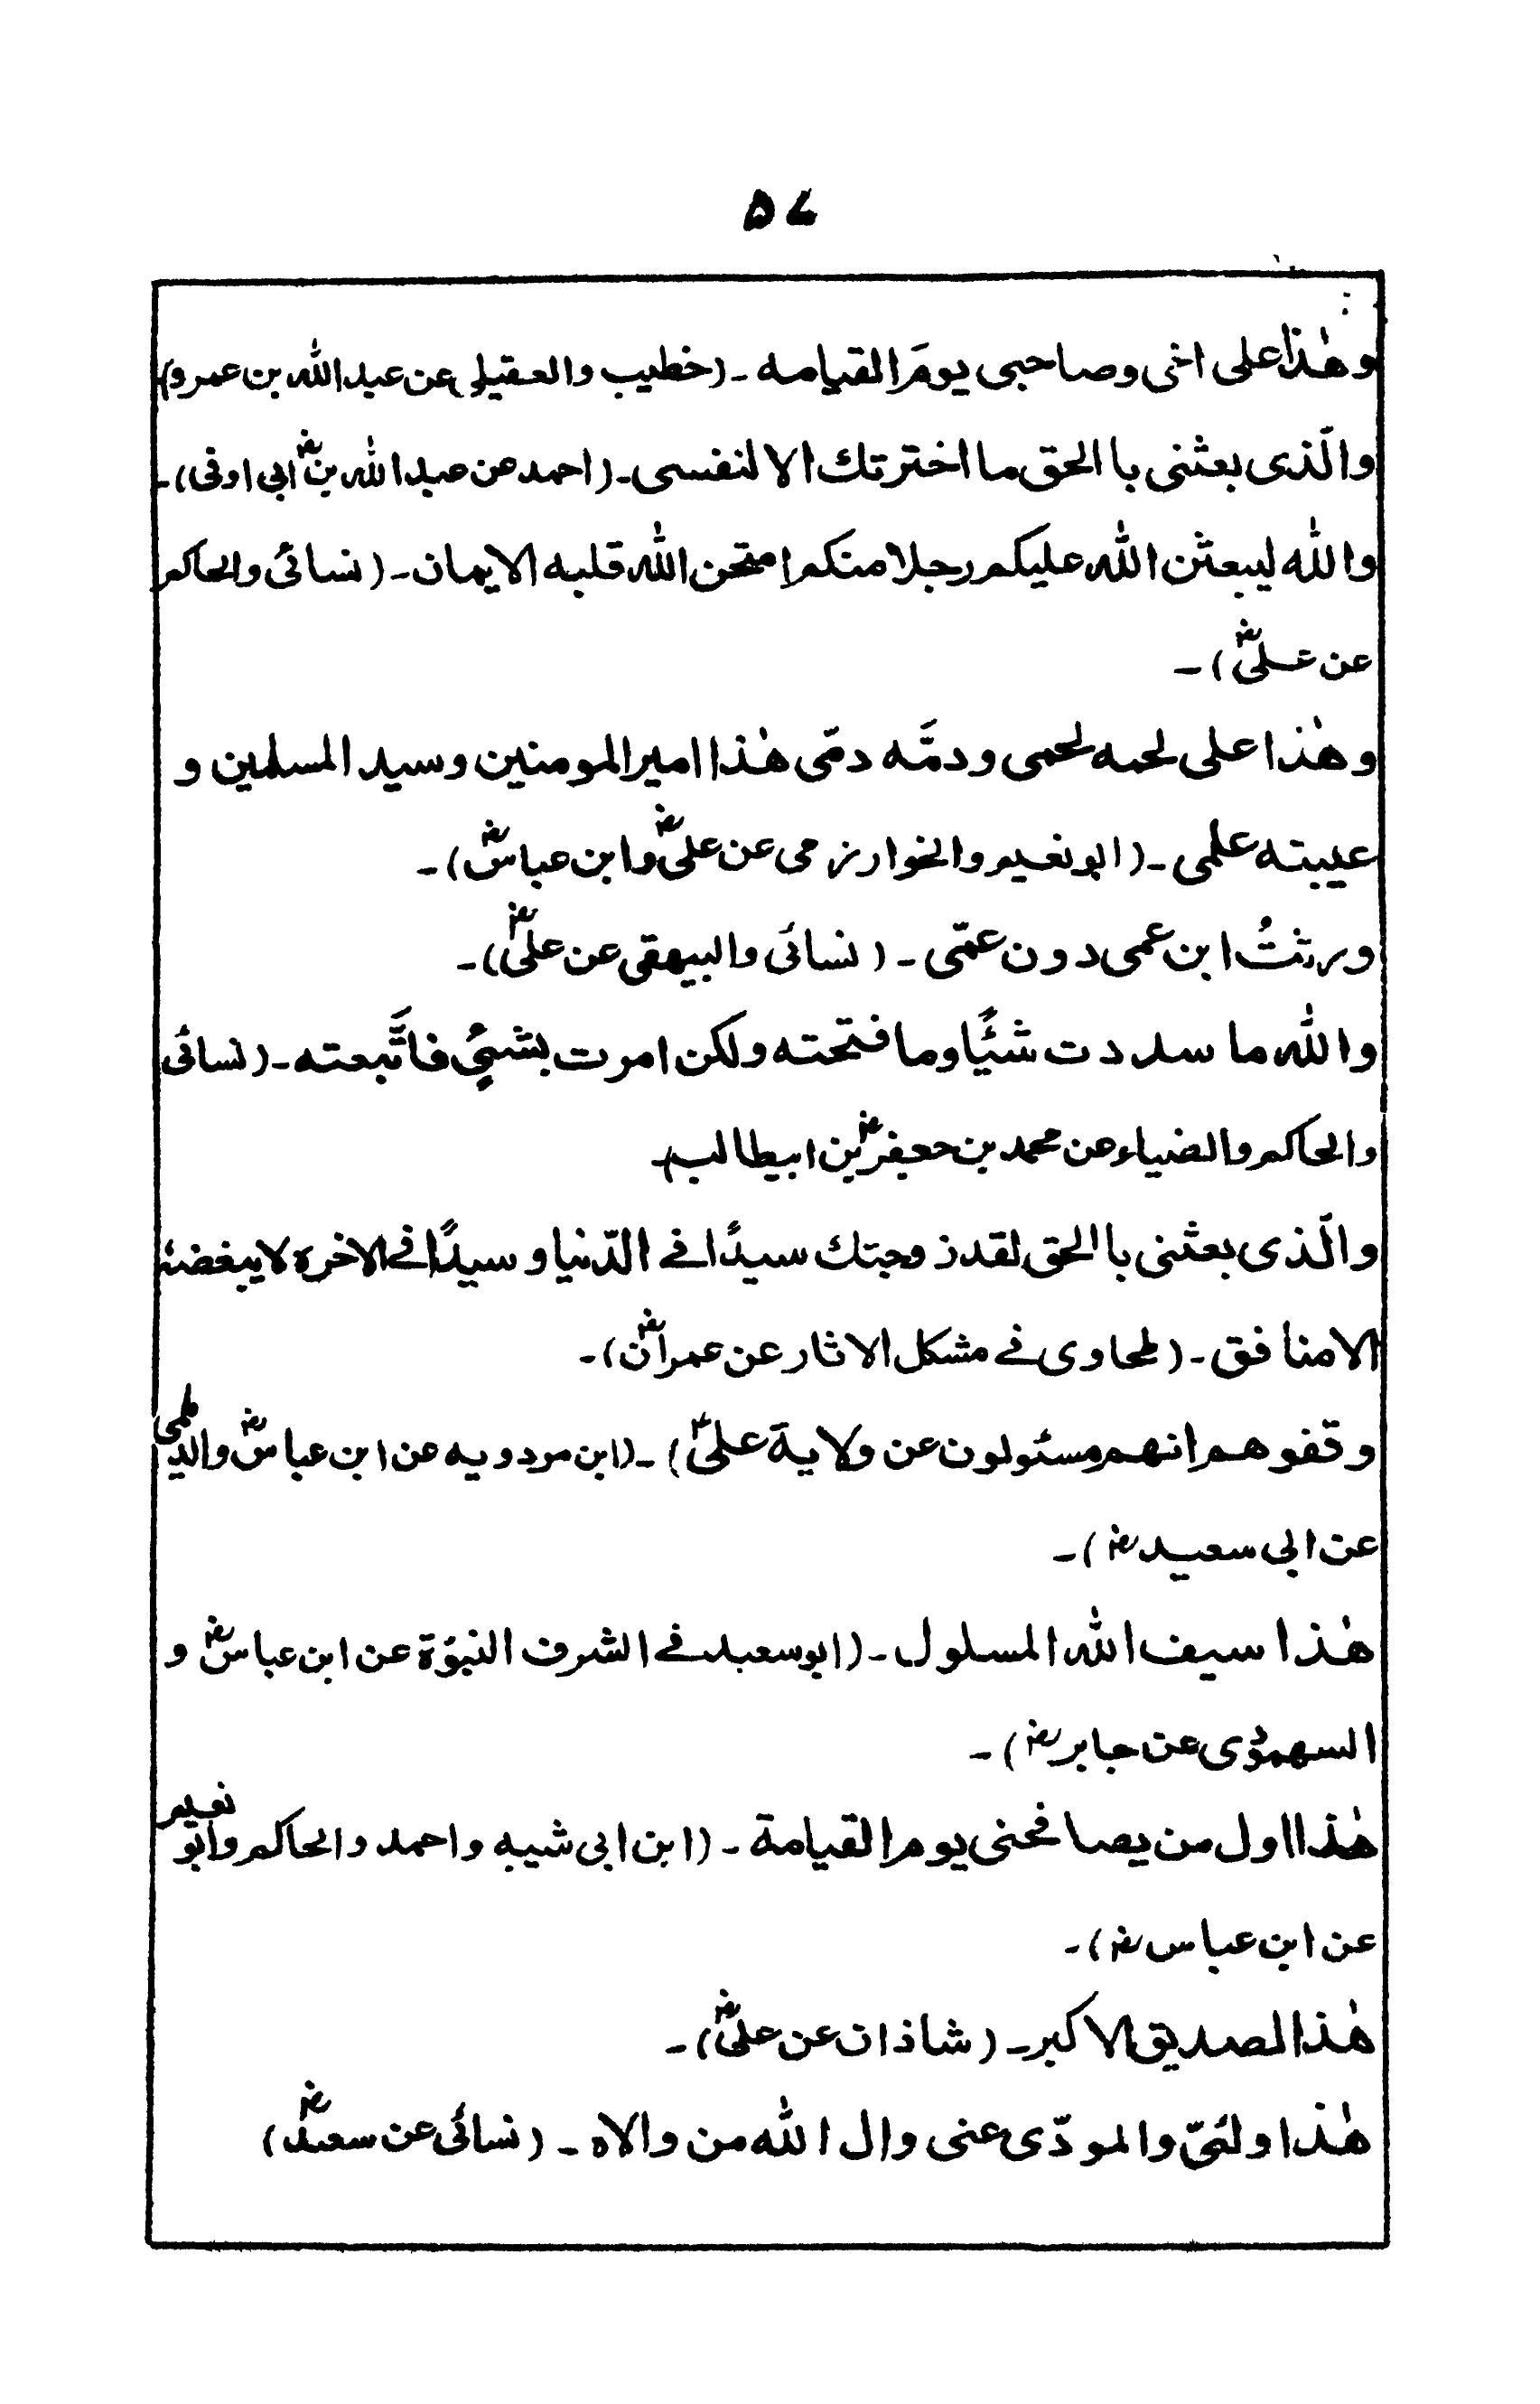 ۵۷
وھٰذا علی اخی وصاحبی یومَ القیامه ۔ (خطیب والعقیلی عن عبداللہ بن عمرو)
والّذی بعثنی با الحق ما اخترتك الا لنفسی ۔ (احمد عن عبداللہ بنؓ ابی اوفی)۔
واللہ لیبعثن اللہ علیکم رجلا منکم امتحن اللہ قلبه الایمان ۔ (نسائی والحاکم
عن علیؓ)۔
وھٰذا علی لحمه لحمی ودمّه دمّی ھٰذا امیر المومنین وسید المسلمین و
عیبته علمی ۔ (ابو نعیم والخوارزمی عن علیؓ وابن عباسؓ)۔
ورثتُ ابن عمی دون عمّی ۔ (نسائی والبیهقی عن علیؓ)۔
واللہ ما سددت شئًیا وما فتحته ولکن امرت بشیٍٔ فاتَّبعته ۔ (نسائی
والحاکم والضیاء عن محمد بن جعفرؓ بن ابیطالب)۔
والّذی بعثنی با الحق لقد زوجتك سیدًا فے الدّنیا و سیدًا فے الاخرہ لا یبغضهٗ
الا منافق ۔ (طحاوی فے مشکل الاثار عن عمرانؓ)۔
وقفوھم انهم مسئولون عن ولایة علیؑ) ۔ (ابن مردویه عن ابن عباسؓ والدیلمی
عن ابی سعیدؓ)۔
ھٰذا سیف اللہ المسلول ۔ (ابوسعید فے الشرف النبوّة عن ابن عباسؓ و
السهموٗی عن جابرؓ)۔
ھٰذا اول من یصافحنی یوم القیامة ۔ (ابن ابی شیبه واحمد والحاکم وابو نعیم
عن ابن عباسؓ)۔
ھٰذا الصدیق الاکبر۔ (شاذان عن علیؓ)۔
ھٰذا ولئیّ والمودّی عنی وال اللہ من والاہ ۔ (نسائی عن سعدؓ)